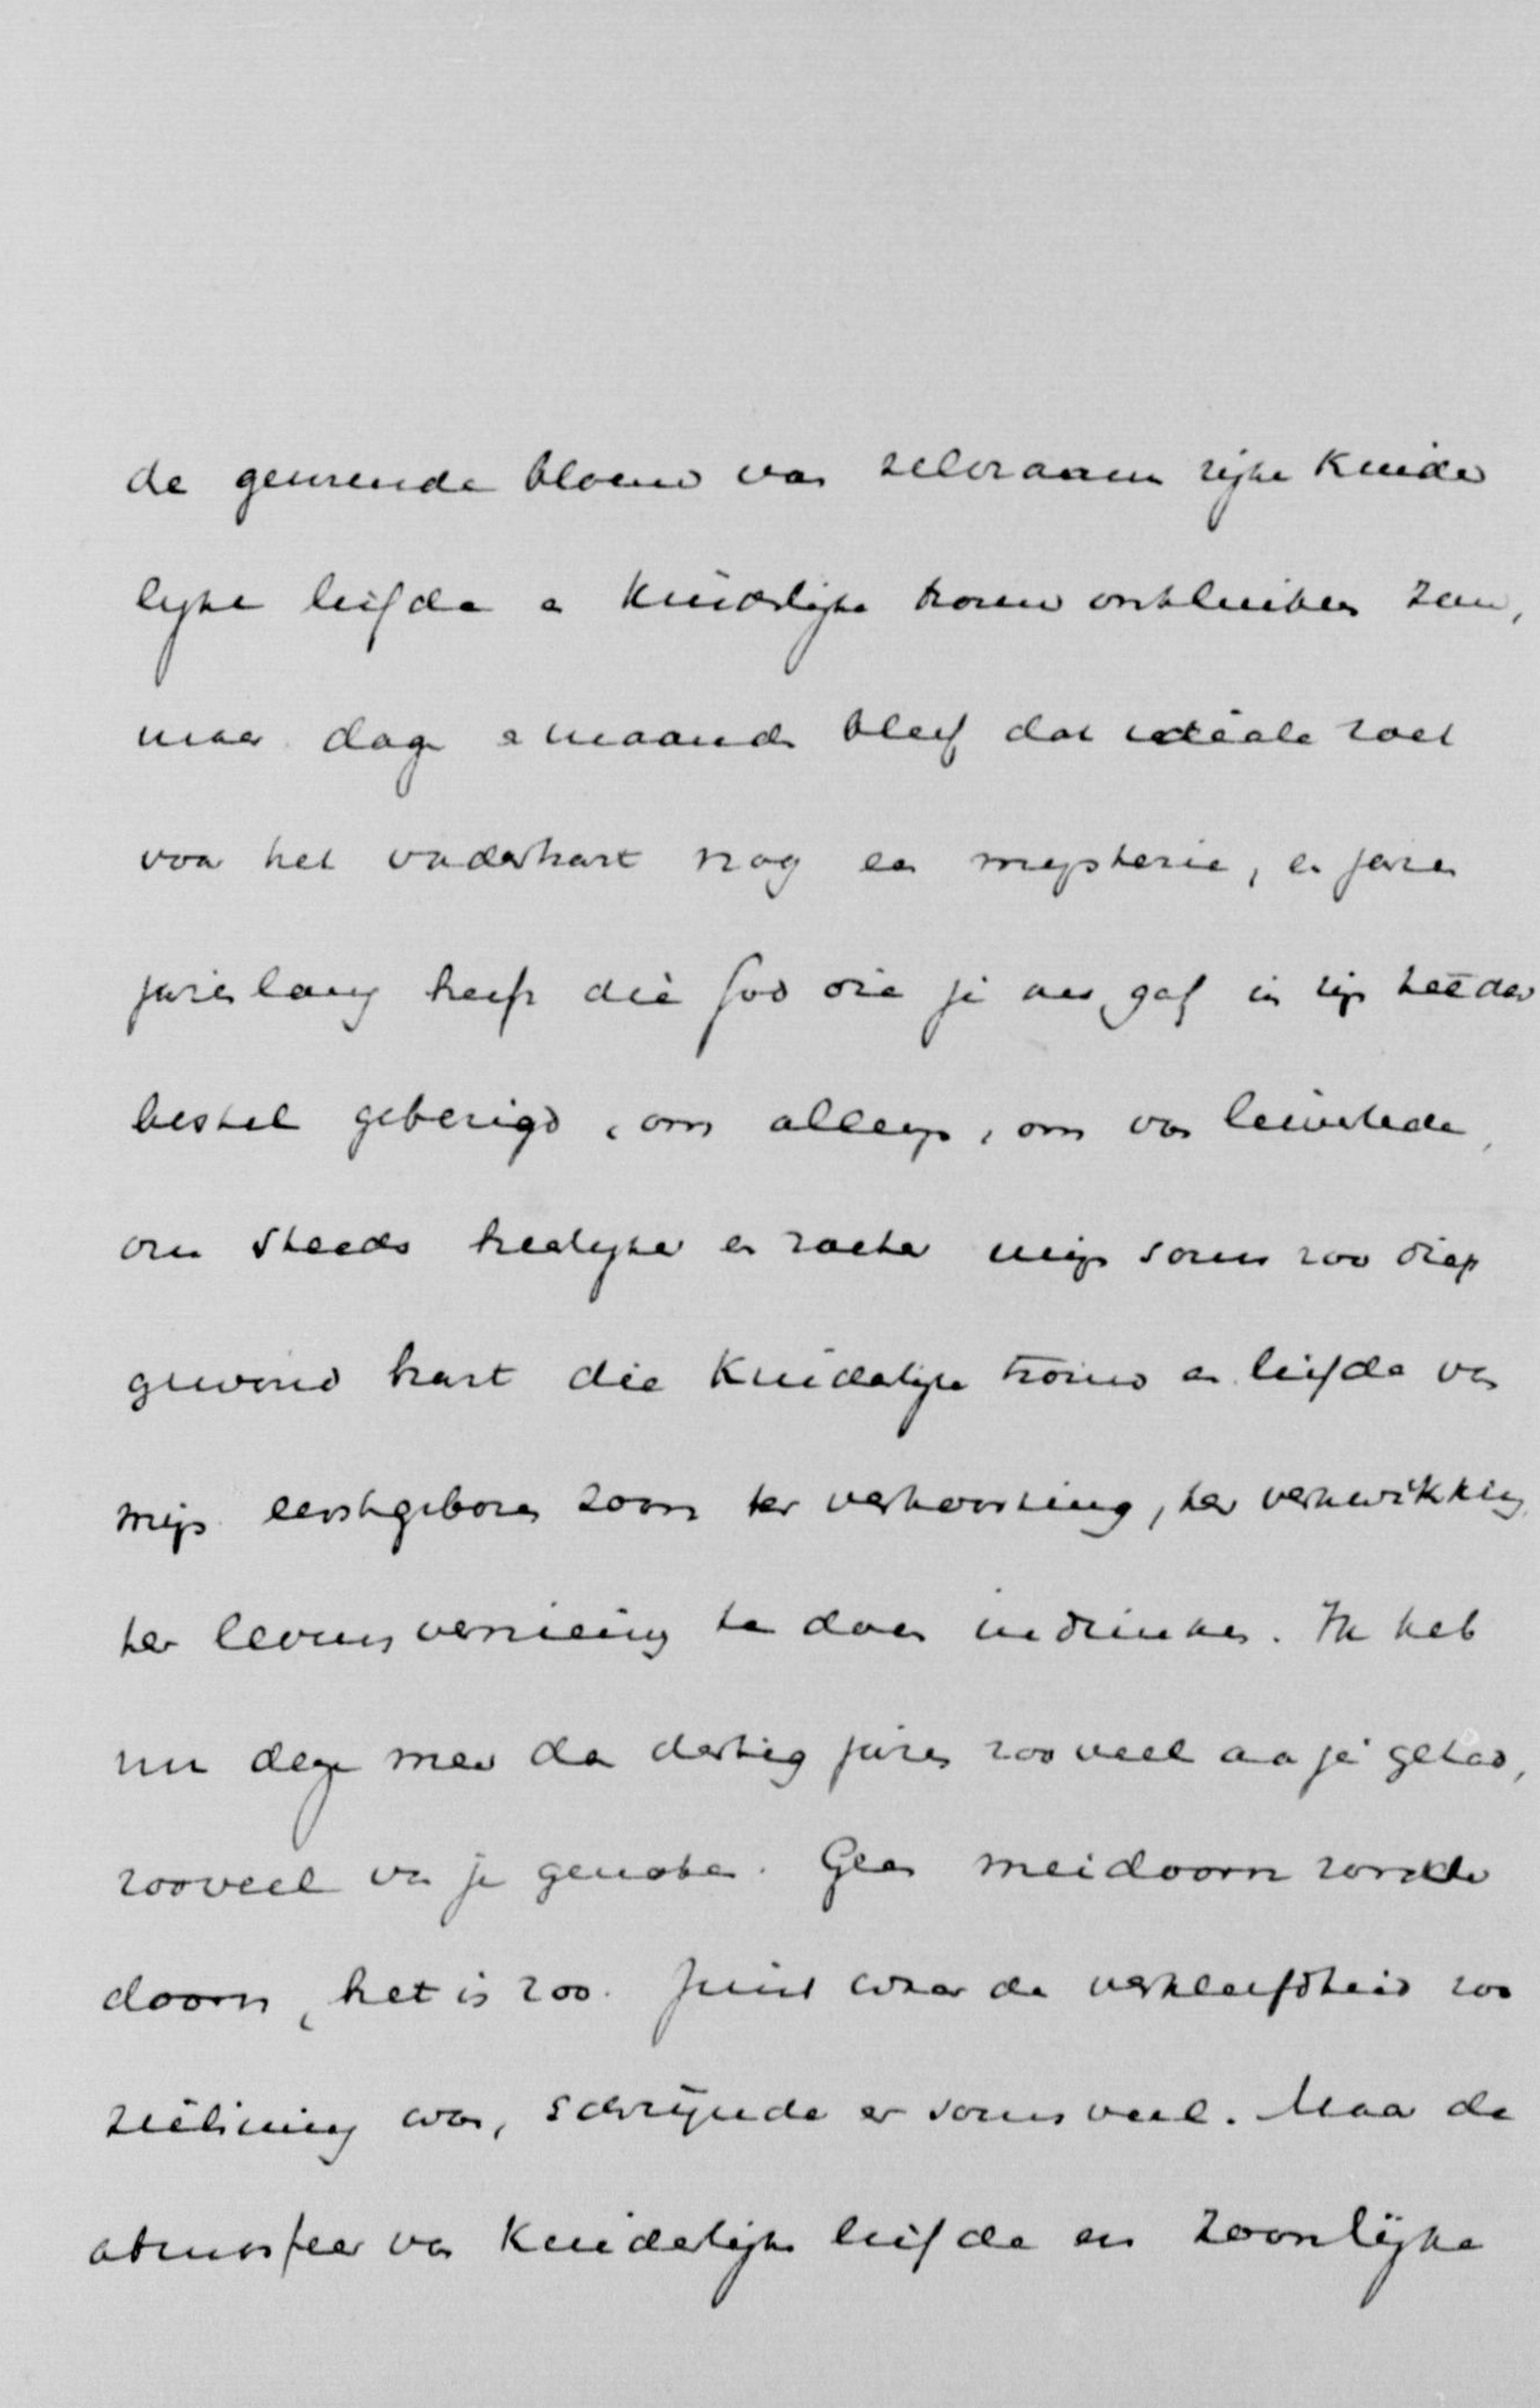 de geurende bloem van zeldzaam rijke kinder
lijke liefde en kinderlijke trouw ontluiken zou,
maar dagen en maanden bleef dat ideale zoet
voor het vaderhart nog een mysterie, en jaren
jarenlang heeft die God die je ons gaf in zijn teeder
bestel gebezigd, om allengs, om van lieverlede,
om steeds heerlijker en zachter mijn soms zoo diep
gewond hart die kinderlijke trouw en liefde van
mijn eerstgeboren zoon ter vertroosting, ter verkwikking
ter levensvernieuwing te doen indrinken. Ik heb
nu deze meer dan dertig jaren zooveel aan je gehad,
zooveel van je genoten. Geen meidoorn zonder
doorn, het is zoo. Juist waar de verkleefdheid zoo
zielinnig was, schrijnde er soms veel. Maar de
atmosfeer van kinderlijke liefde en zoonlijke